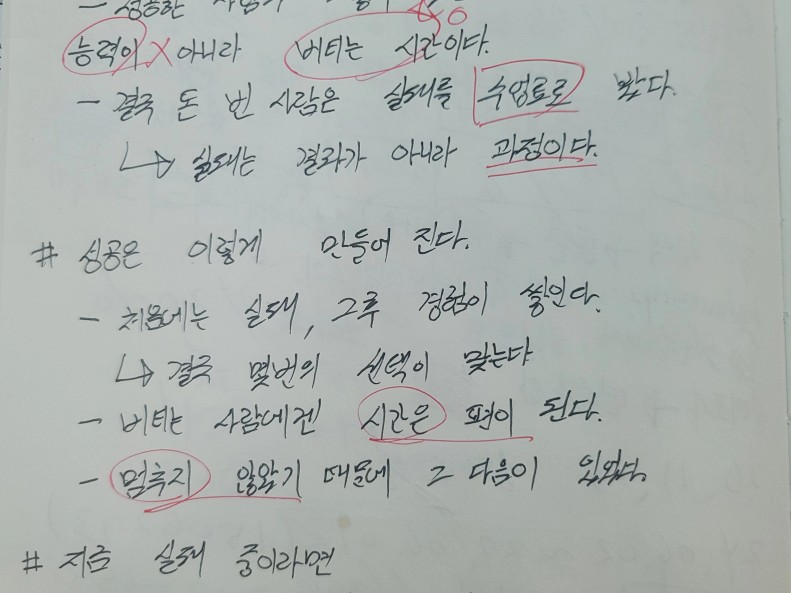 - 성공한 사람의
능력이 X 아니라 버티는 시간이다.
- 결국 돈 번 사람은 실패를 수업료로 봤다.
↳ 실패는 결과가 아니라 과정이다.
# 성공은 이렇게 만들어 진다.
- 처음에는 실패, 그후 경험이 쌓인다.
↳ 결국 몇번의 선택이 맞는다
- 버티는 사람에겐 시간은 편이 된다.
- 멈추지 않았기 때문에 그 다음이 있었다.
# 지금 실패 중이라면